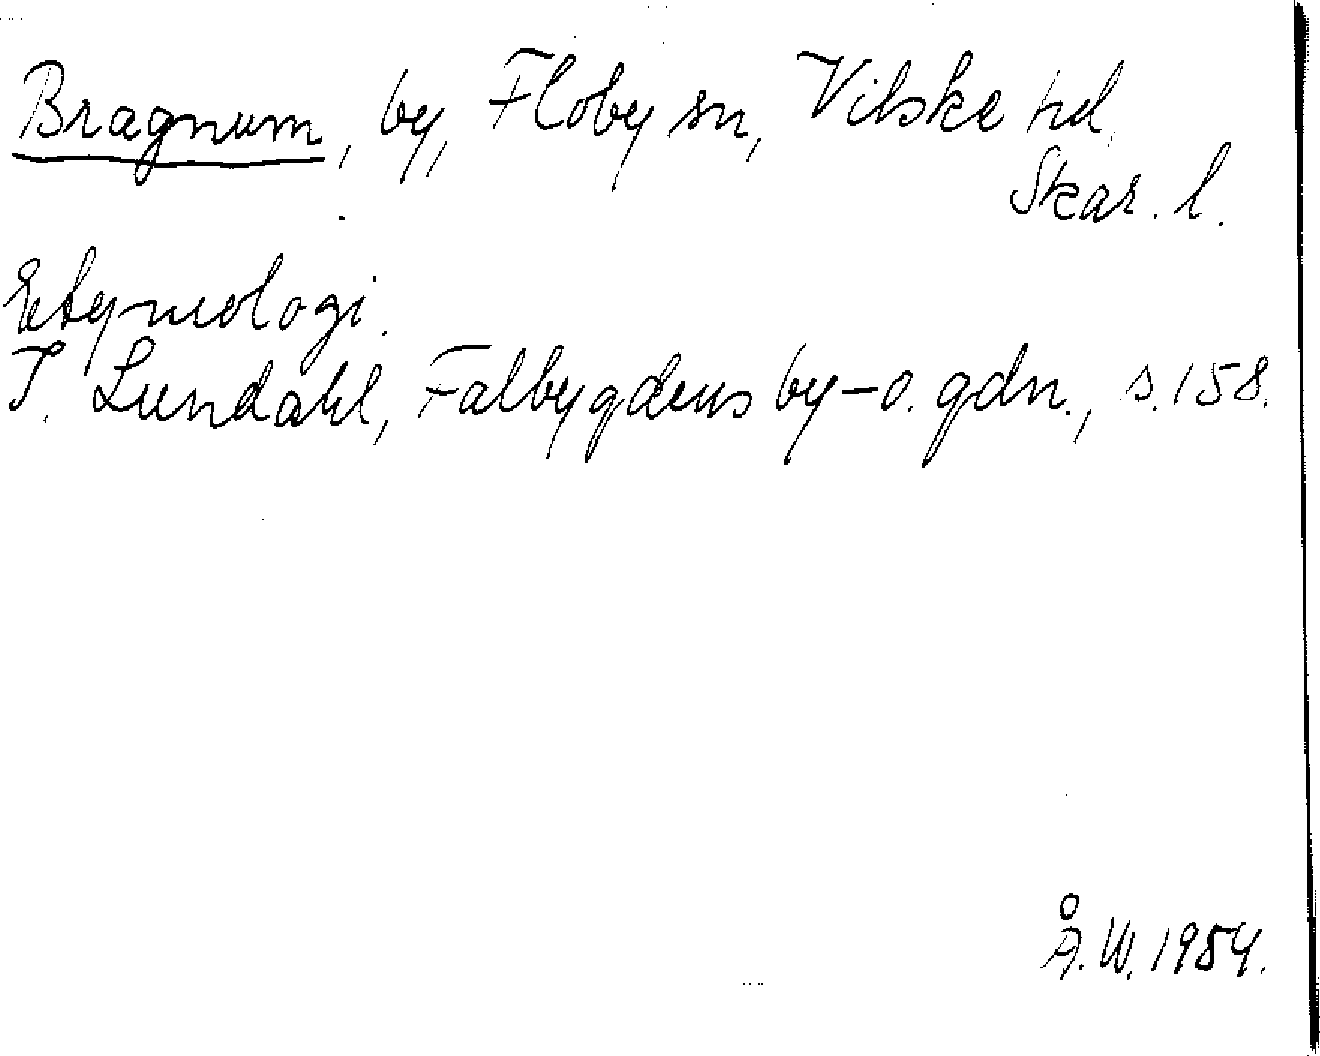 Bragnum, by, Floby sn, Vilske hd,
Skar. l.
Etymologi.
I. Lundahl, Falbygdens by- o. gdn., s. 158.
Å. W. 1954.